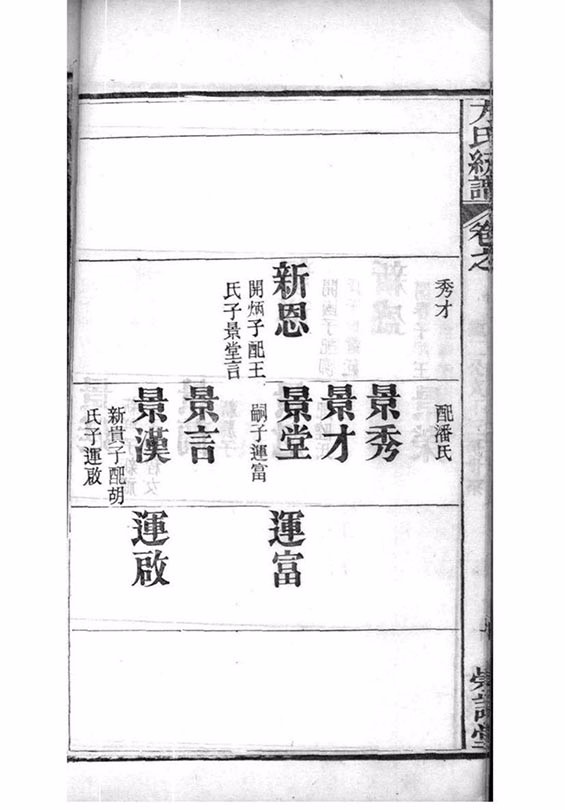 方氏統譜
卷之
秀才
新恩
開炳子配王
氏子景堂言
配潘氏
景秀
景才
景堂
嗣子運富
景言
景漢
新貴子配胡
氏子運啟
運富
運啟